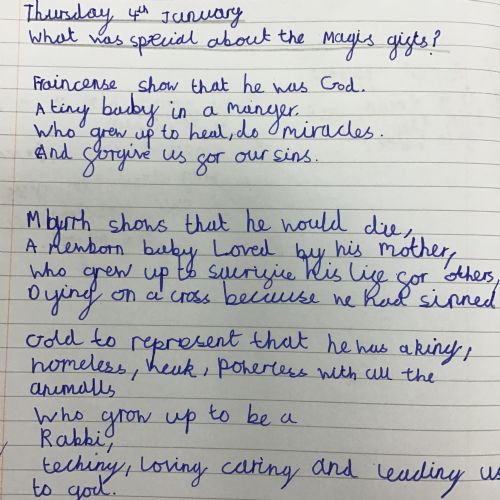 Thursday 4th January
What was special about the Magis gifts?
Fraincense show that he was God.
A tiny baby in a manger.
Who grew up to heal, do miracles.
And forgive us for our sins.
Myrrh shows that he would die,
A newborn baby Loved by his mother,
who grew up to sacrifice his life for others,
Dying on a cross because he had sinned
Gold to represent that he was a king,
homeless, weak, powerless with all the
animalls
who grow up to be a
Rabbi,
teching, loving caring and leading us
to god.